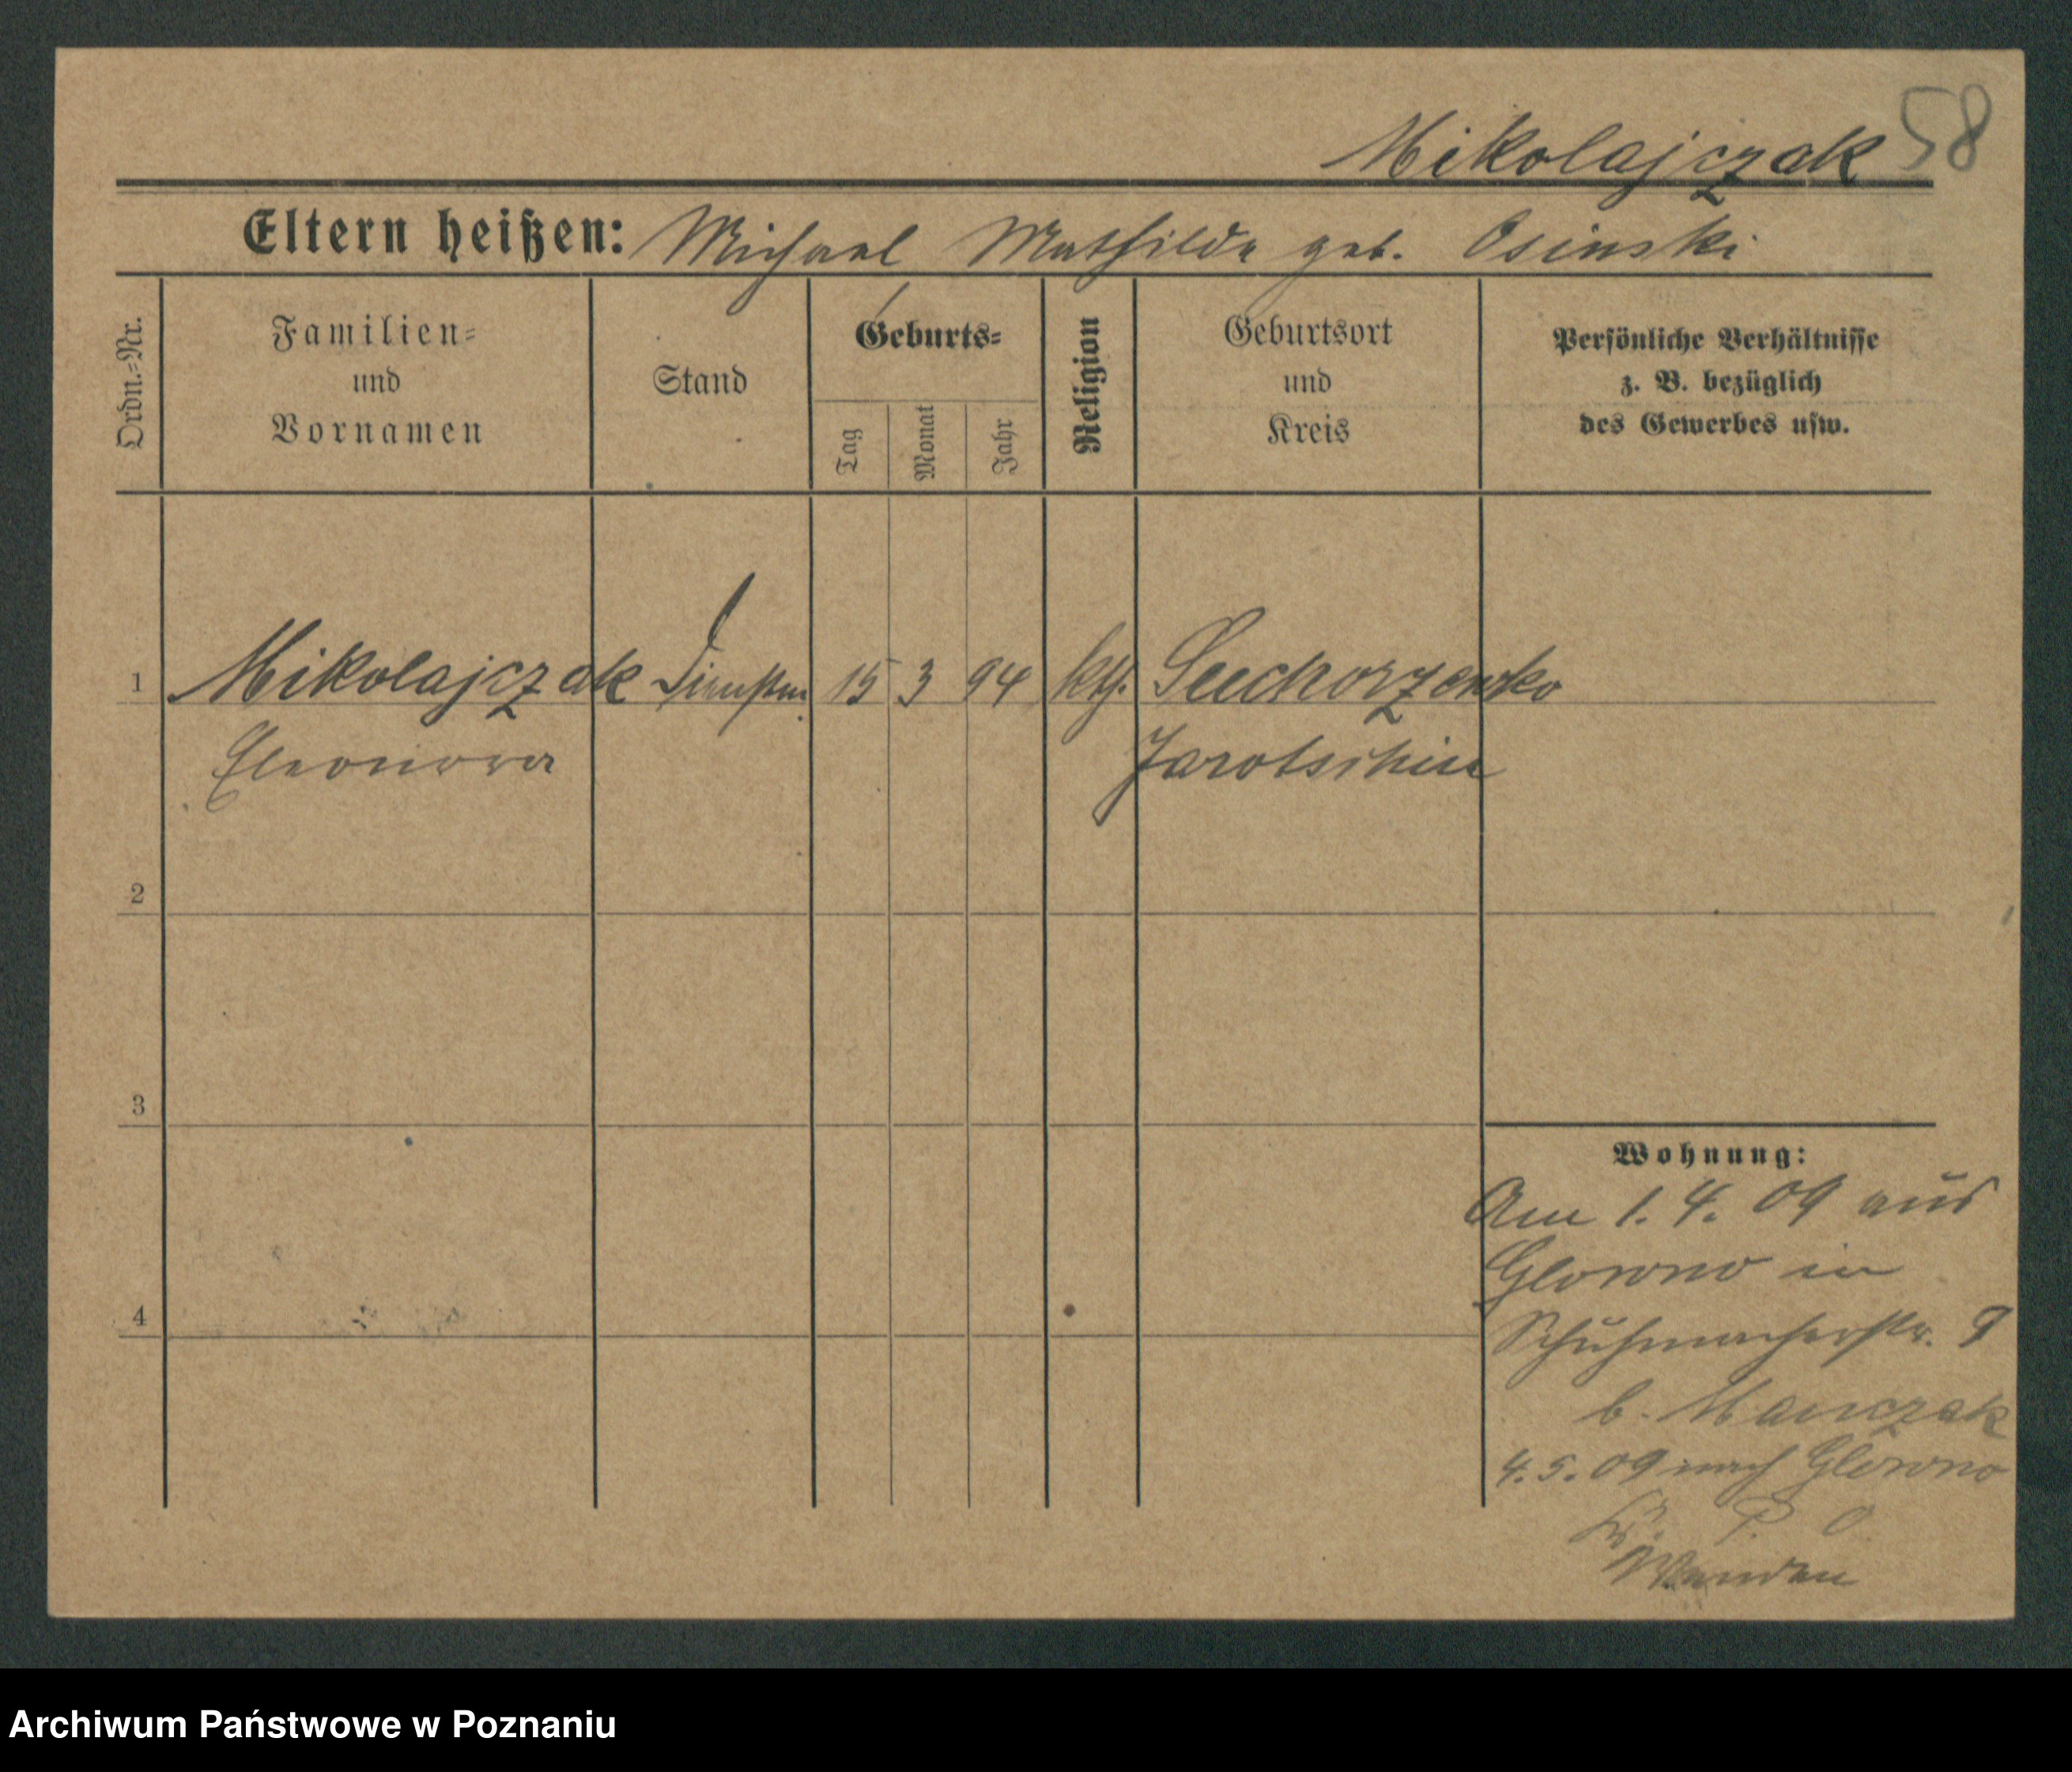 58
Mikolajczak
Eltern heißen: Michael Mathilde geb. Osinski
Ordn.-Nr.
Familien-
und
Vornamen
Stand
Geburts-
Tag
Monat
Jahr
Religion
Geburtsort
und
Kreis
Persönliche Verhältnisse
z. B. bezüglich
des Gewerbes usw.
1 Mikolajczak 15 3 94 kth.
Eleonora Jarotschin
2
3
4
Wohnung:
Am 1. 4. 09 aus
Glowno in
Schuhmacherstr. 9
b.
4. 5. 09 nach Glowno
Kr. P. O.
Archiwum Państwowe w Poznaniu